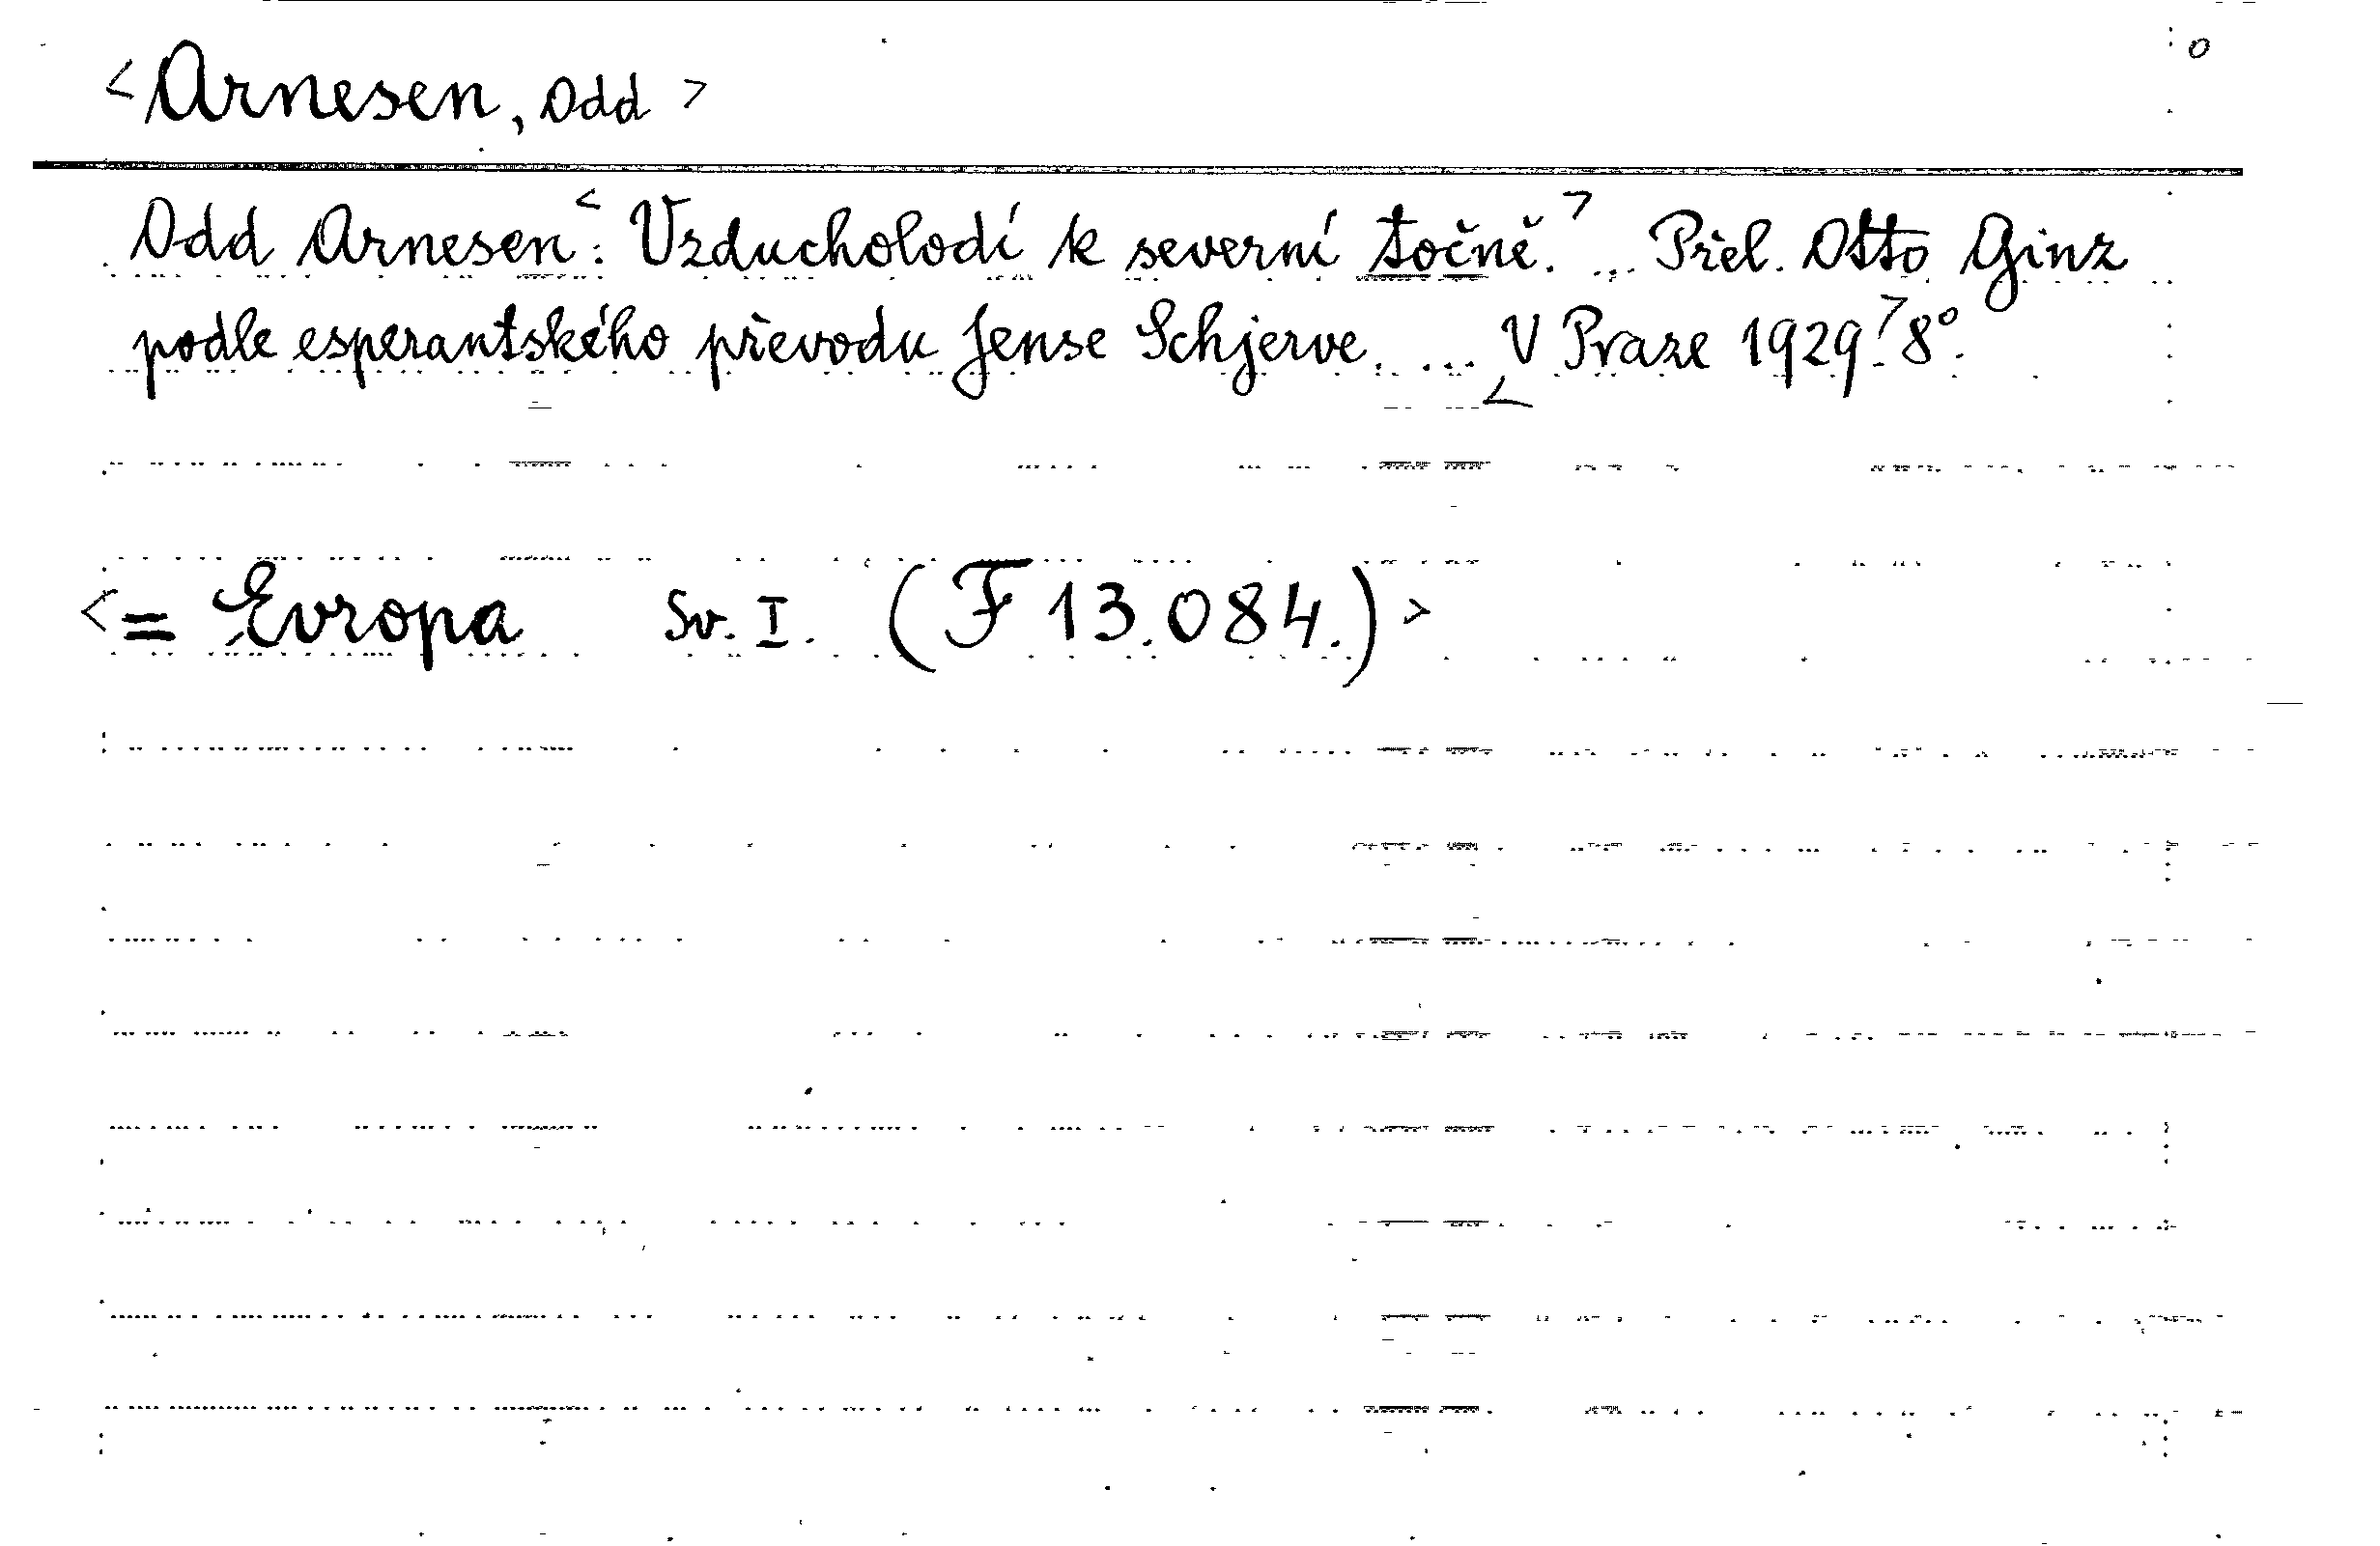 <Arnesen, Odd>
Odd Arnesen: <Vzducholodí k severní točně.> ... Přel. Otto Ginz
podle esperantského převodu Jense Schjerve. ... <V Praze 1929.> 8°.
<= Evropa Sv. I. (F 13.084.)>